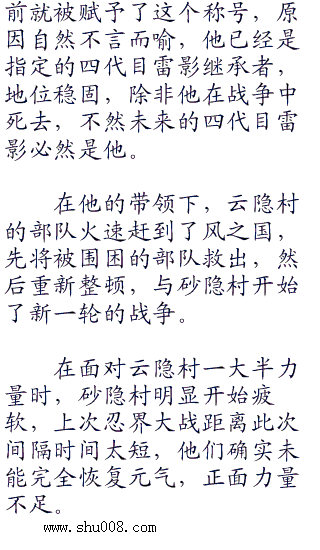 前就被赋予了这个称号，原
因自然不言而喻，他已经是
指定的四代目雷影继承者，
地位稳固，除非他在战争中
死去，不然未来的四代目雷
影必然是他。
在他的带领下，云隐村
的部队火速赶到了风之国，
先将被围困的部队救出，然
后重新整顿，与砂隐村开始
了新一轮的战争。
在面对云隐村一大半力
量时，砂隐村明显开始疲
软，上次忍界大战距离此次
间隔时间太短，他们确实未
能完全恢复元气，正面力量
不足。
www.shu008.com